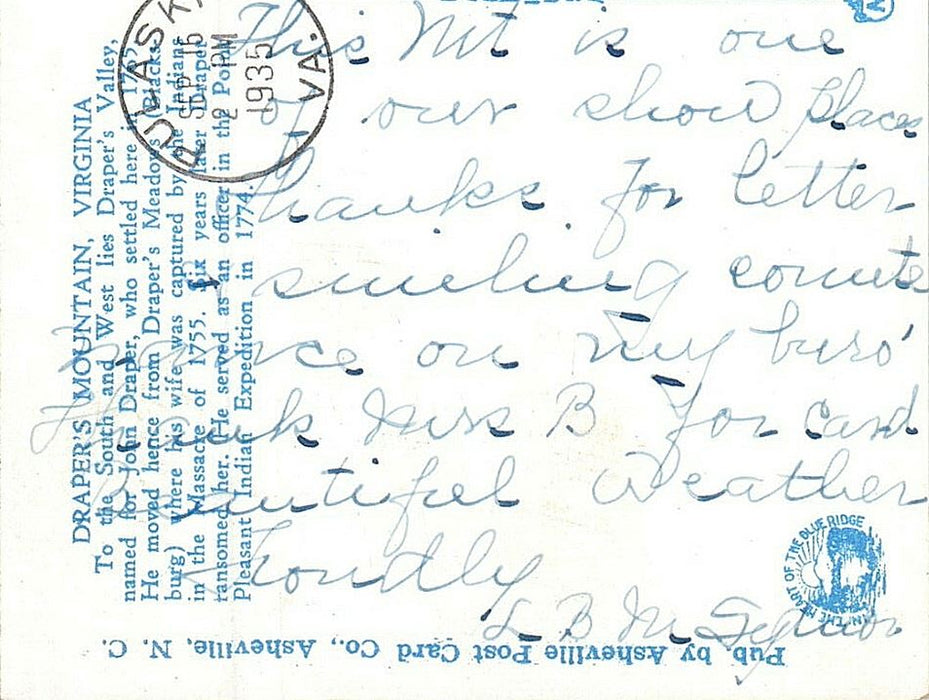 This Mt is one
of our show places
Thanks for letter
smiling counte
nance on my buro
Thank Miss B for card
Beautiful Weather
Fondly
L B
PULASKI
VA.
SEP 16
2 PM
1935
DRAPER'S MOUNTAIN, VIRGINIA
To the South and West lies Draper's Valley,
named for John Draper, who settled here in 1765.
He moved hence from Draper's Meadows (Blacks-
burg) where his wife was captured by the Indians
in the Massacre of 1755. Six years later Draper
ransomed her. He served as an officer in the Point
Pleasant Indian Expedition in 1774.
Pub. by Asheville Post Card Co., Asheville, N. C.
IN THE HEART OF THE BLUE RIDGE